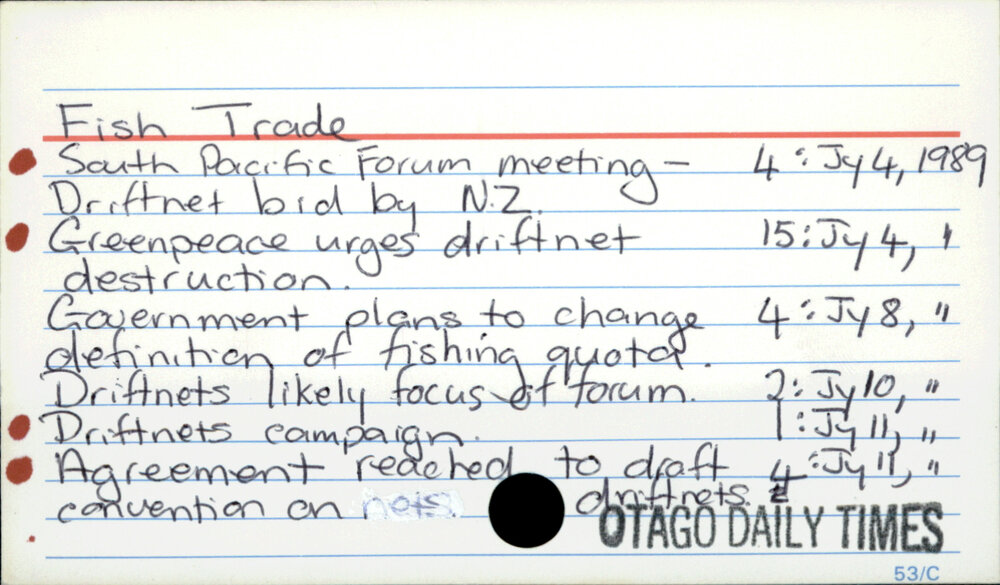 Fish Trade
South Pacific Forum meeting – 4: Jy 4, 1989
Driftnet bid by N.Z.
Greenpeace urges driftnet 15: Jy 4, "
destruction.
Government plans to change 4: Jy 8, "
definition of fishing quota.
Driftnets likely focus of forum. 2: Jy 10, "
Driftnets campaign. 1: Jy 11, "
Agreement reached to draft 4: Jy 11, "
convention on nets. driftnets.
OTAGO DAILY TIMES
53/C